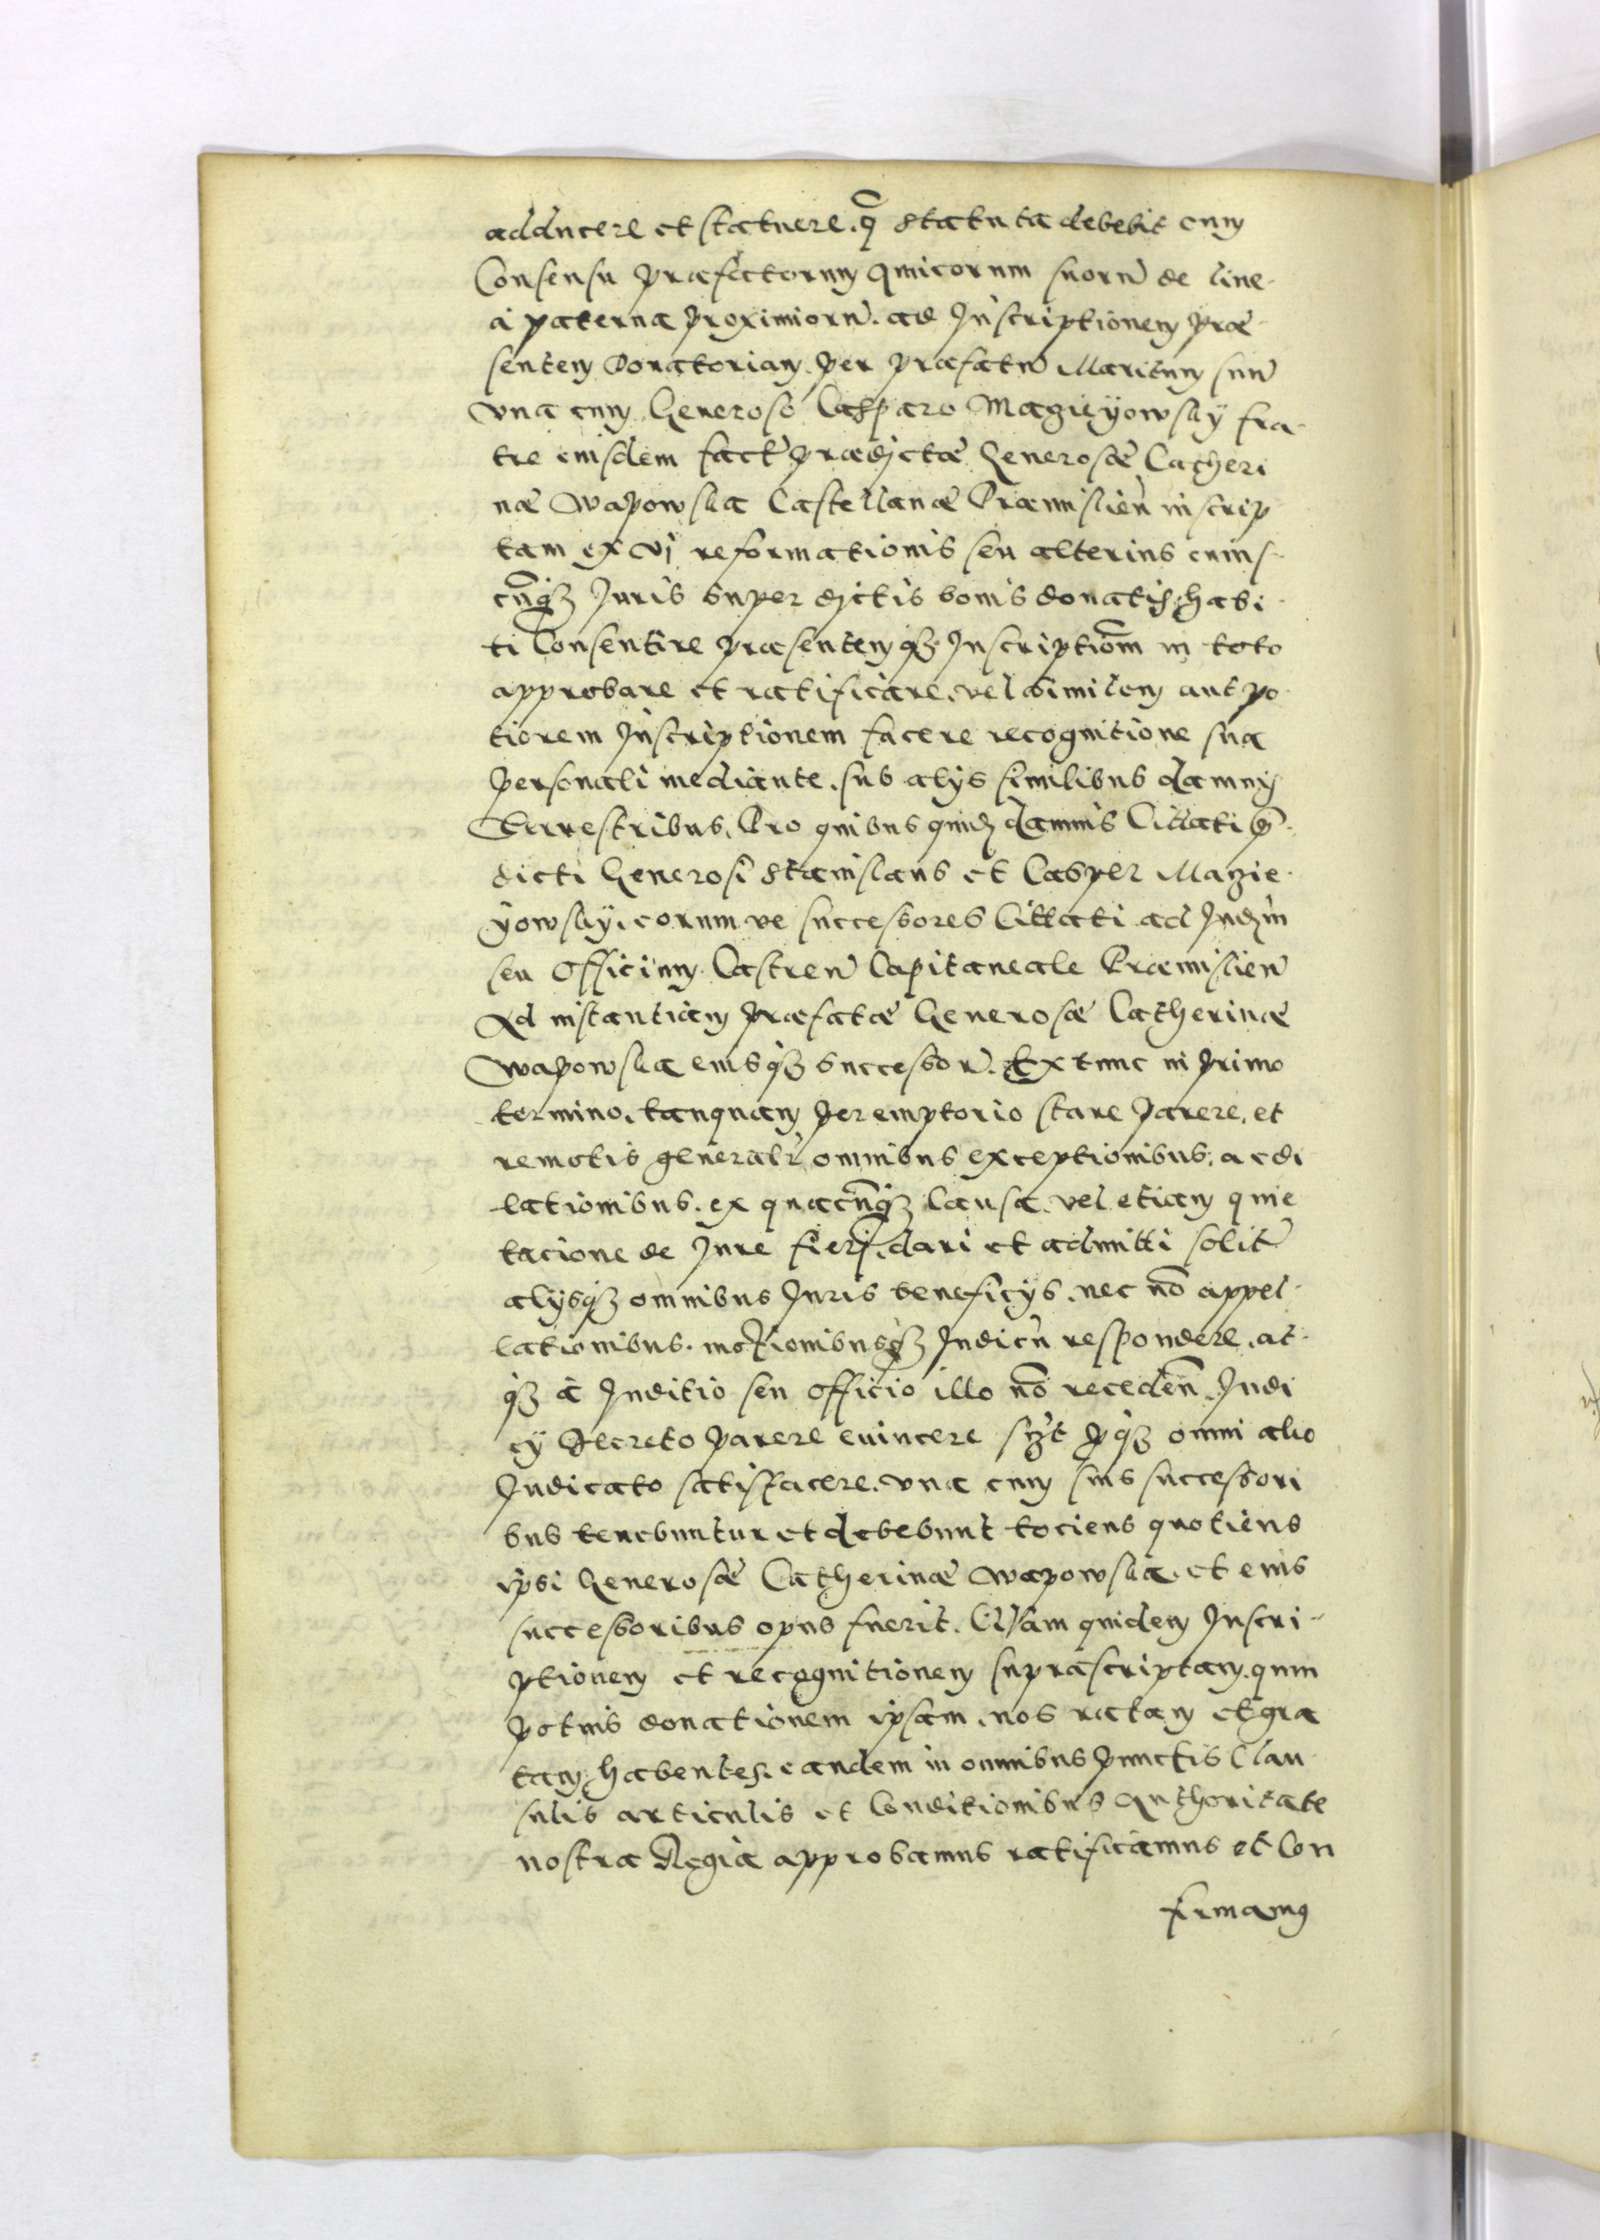 adducere et statuere. q̄ statuta debebit cum
Consensu præfectorum Amicorum suorū de line-
a paterna proximiorū. ad Inscriptionem præ-
sentem Donatoriam. per præfatū Maritum suū
vna cum Generoso Casparo Magieyowsky fra-
tre eiusdem fact̄ prædictæ Generosæ Catheri
næ Wapowska Castellanæ Præmislien̄ inscrip
tam ex vi reformationis seu alterius cuius-
cun̄qȝ Juris super dictis bonis donatis habi-
ti Consentire præsentemqȝ Inscriptiōm in toto
approbare et ratificare, vel similem aut po-
tiorem Inscriptionem facere recognitione sua
personali mediante. sub alys similibus damnis
Terrestribus. Pro quibus quidȝ damnis Cittati p̄-
dicti Generosi Stanislaus et Casper Magie-
yowsky. eorum ve successores Cittati ad Judȝm
seu Officium Castren̄ Capitaneale Præmislien̄
Ad instantiam præfatæ Generosæ Catherinæ
Wapowska eiusqȝ successor̄. Extunc in primo
termino. tanquam peremptorio stare parere. et
remotis generalr̄ omnibus exceptionibus. ac di
lationibus. ex quacun̄qȝ Causa. vel etiam quie
tacione de Jure fieri. dari et admitti solit̄
alysqȝ omnibus Juris beneficys. nec nō appel-
lationibus. motionibusqȝ Judicū respondere. at-
qȝ à Juditio seu officio illo nō recedēn. Judi
cy Decreto parere euincere sȝt pqȝ omni alio
Judicato satisfacere. vna cum suis successori
bus tenebuntur et debebunt tociens quotiens
ipsi Generosæ Catherinæ Wapowska. et eius
successoribus opus fuerit. quidem Inscri-
ptionem et recognitionem suprascriptam. quin
potius donationem ipsam. nos ratam et gra
tam habentes. eandem in omnibus punctis Clau-
sulis articulis et Conditionibus Authoritate
nostra Regia approbamus ratificamus et Con
firmamus